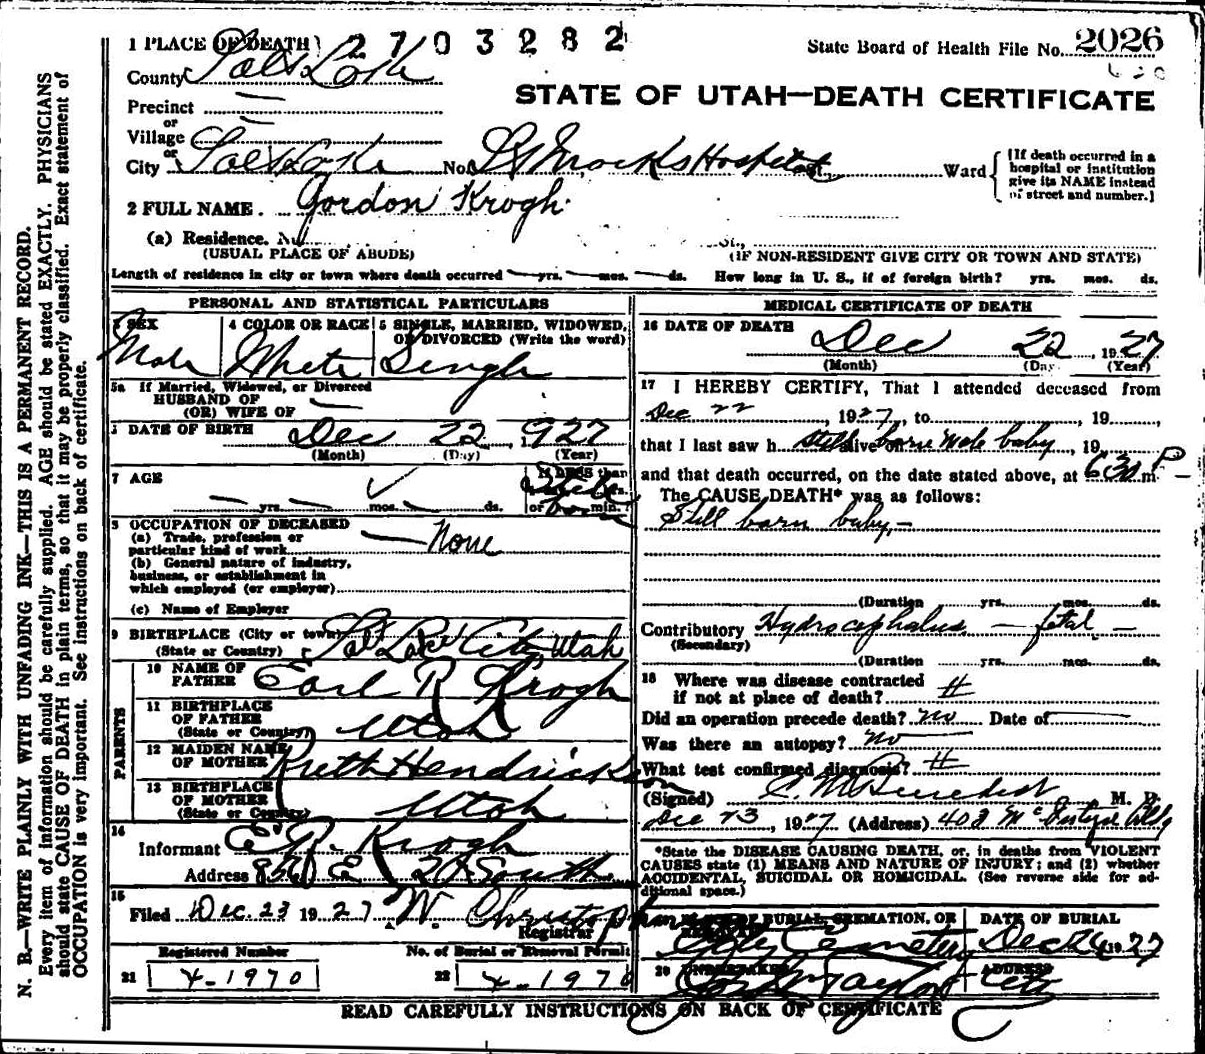 1 PLACE OF DEATH 2703282 State Board of Health File No. 2026
County Salt Lake
STATE OF UTAH—DEATH CERTIFICATE
Precinct
or
Village
or
City Salt Lake No. Hospital Ward
[If death occurred in a hospital or institution give its NAME instead of street and number.]
2 FULL NAME Gordon Krogh
(a) Residence. No. St.,
(USUAL PLACE OF ABODE) (IF NON-RESIDENT GIVE CITY OR TOWN AND STATE)
Length of residence in city or town where death occurred yrs. mos. ds. How long in U. S., if of foreign birth? yrs. mos. ds.
PERSONAL AND STATISTICAL PARTICULARS
3 SEX Male
4 COLOR OR RACE White
5 SINGLE, MARRIED, WIDOWED, OR DIVORCED (Write the word) Single
5a If Married, Widowed, or Divorced
HUSBAND OF
(OR) WIFE OF
DATE OF BIRTH Dec 22, 1927
(Month) (Day) (Year)
7 AGE yrs. mos. ds. If LESS than
or min.
8 OCCUPATION OF DECEASED
(a) Trade, profession or
particular kind of work None
(b) General nature of industry,
business, or establishment in
which employed (or employer)
(c) Name of Employer
9 BIRTHPLACE (City or town) Salt Lake City, Utah
(State or Country)
PARENTS
10 NAME OF FATHER Earl R Krogh
11 BIRTHPLACE OF FATHER Utah
(State or Country)
12 MAIDEN NAME OF MOTHER Ruth Hendrickson
13 BIRTHPLACE OF MOTHER Utah
(State or Country)
14
Informant E. R. Krogh
Address E South
15
Filed Dec. 23 1927 W. Christopherson
Registrar
Registered Number No. of Burial or Removal Permit
21 4-1970 22 4-1970
MEDICAL CERTIFICATE OF DEATH
16 DATE OF DEATH
Dec 22, 1927
(Month) (Day) (Year)
17 I HEREBY CERTIFY, That I attended deceased from
Dec 22, 1927, to , 19 ,
that I last saw h still alive on born male baby, 19
and that death occurred, on the date stated above, at 630 P m.
The CAUSE DEATH* was as follows:
Still born baby -
(Duration yrs. mos. ds.
Contributory Hydrocephalus - fetal -
(Secondary)
(Duration yrs. mos. ds.
18 Where was disease contracted
if not at place of death?
Did an operation precede death? no Date of
Was there an autopsy? no
What test confirmed diagnosis?
(Signed) C. M. Benedict M. D.
Dec 23, 1927 (Address) McIntyre Bldg
*State the DISEASE CAUSING DEATH, or, in deaths from VIOLENT
CAUSES state (1) MEANS AND NATURE OF INJURY; and (2) whether
ACCIDENTAL, SUICIDAL OR HOMICIDAL. (See reverse side for additional space.)
PLACE OF BURIAL, CREMATION, OR REMOVAL DATE OF BURIAL
City Cemetery Dec 24 1927
20 UNDERTAKER ADDRESS
Taylor City
READ CAREFULLY INSTRUCTIONS ON BACK OF CERTIFICATE
N. B.—WRITE PLAINLY WITH UNFADING INK—THIS IS A PERMANENT RECORD.
Every item of information should be carefully supplied. AGE should be stated EXACTLY. PHYSICIANS
should state CAUSE OF DEATH in plain terms, so that it may be properly classified. Exact statement of
OCCUPATION is very important. See instructions on back of certificate.